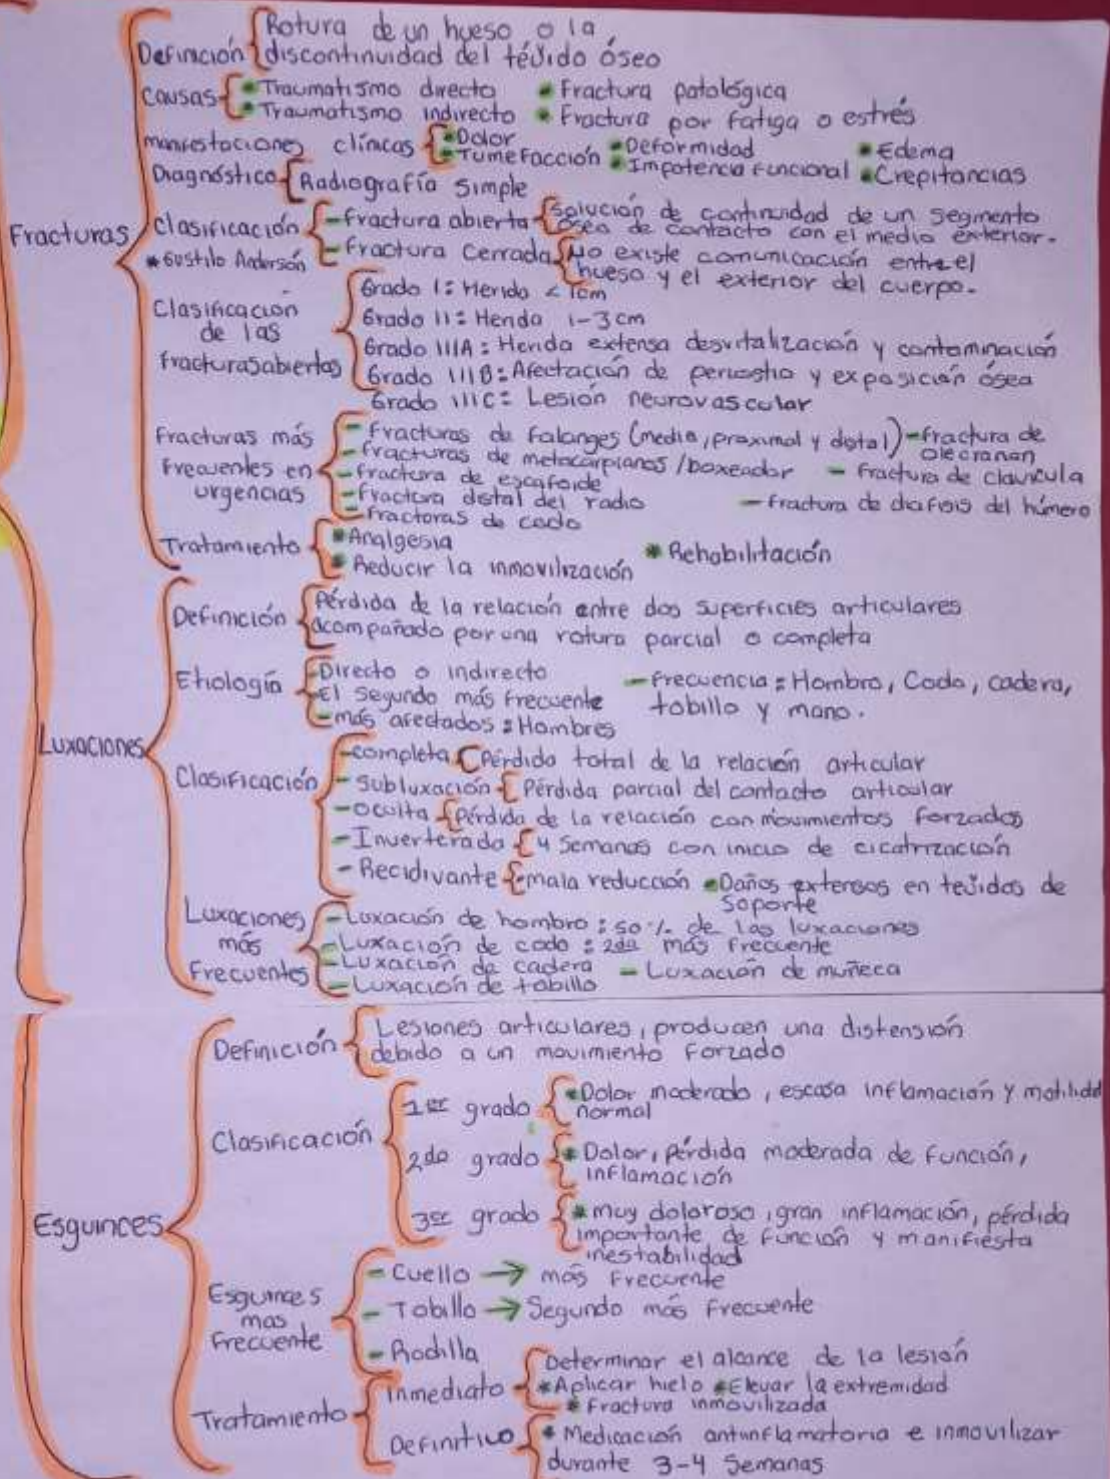 Fracturas
Definición
Rotura de un hueso o la
discontinuidad del tejido óseo
Causas
Traumatismo directo
Fractura patológica
Traumatismo indirecto
Fractura por fatiga o estrés
manifestaciones clínicas
Dolor
Deformidad
Edema
Tumefacción
Impotencia Funcional
Crepitancias
Diagnóstico
Radiografía simple
Clasificación
*Gustilo Anderson
- Fractura abierta
Solución de continuidad de un segmento
ósea de contacto con el medio exterior.
- Fractura Cerrada
No existe comunicación entre el
hueso y el exterior del cuerpo.
Clasificación
de las
fracturas abiertas
Grado I: Herida < 1cm
Grado II: Herida 1-3cm
Grado IIIA: Herida extensa desvitalización y contaminación
Grado IIIB: Afectación de periostio y exposición ósea
Grado IIIC: Lesión neurovascular
Fracturas más
Frecuentes en
urgencias
- Fracturas de falanges (media, proximal y distal)
- fractura de
olecranon
- fracturas de metacarpianos / boxeador
- fractura de clavícula
- fractura de escafoide
- fractura distal del radio
- fractura de diafisis del húmero
- fracturas de codo
Tratamiento
Analgesia
Rehabilitación
Reducir la inmovilización
Luxaciones
Definición
Pérdida de la relación entre dos superficies articulares
acompañado por una rotura parcial o completa
Etiología
- Directo o indirecto
- El segundo más frecuente
- más afectados: Hombres
- frecuencia: Hombro, Codo, cadera,
tobillo y mano.
Clasificación
- completa
Pérdida total de la relación articular
- Subluxación
Pérdida parcial del contacto articular
- Oculta
Pérdida de la relación con movimientos forzados
- Inverterada
4 semanas con inicio de cicatrización
- Recidivante
mala reducción
Daños extensos en tejidos de
soporte
Luxaciones
más
Frecuentes
- Luxación de hombro: 50% de las luxaciones
- Luxación de codo: 2da más frecuente
- Luxación de cadera
- Luxación de muñeca
- Luxación de tobillo
Esguinces
Definición
Lesiones articulares, producen una distensión
debido a un movimiento forzado
Clasificación
1er grado
Dolor moderado, escasa inflamación y motilidad
normal
2do grado
Dolor, pérdida moderada de función,
inflamación
3er grado
muy doloroso, gran inflamación, pérdida
importante de función y manifiesta
inestabilidad
Esguinces
mas
Frecuente
- Cuello → más frecuente
- Tobillo → Segundo más frecuente
- Rodilla
Tratamiento
Inmediato
Determinar el alcance de la lesión
*Aplicar hielo *Elevar la extremidad
* Fractura inmovilizada
Definitivo
* Medicación antinflamatoria e inmovilizar
durante 3-4 semanas